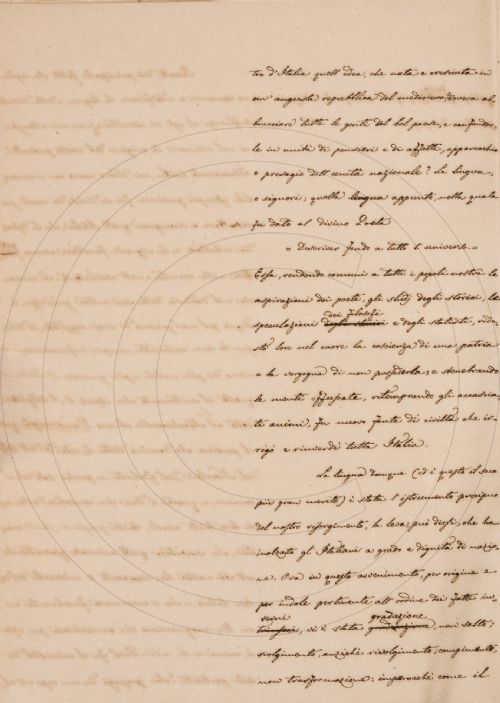 tro d'Italia quell'idea, che nata e cresciuta in
un' augusta repubblica del medioevo, doveva ab-
bracciare tutte le genti del bel paese, e confonder-
le in unità di pensieri e di affetti, apparecchio
e presagio dell'unità nazionale? La lingua,
o signori; quella lingua appunto, nella quale
fu dato al divino Poeta
« Descriver fondo a tutto l'universo. »
Essa, rendendo comuni a tutti i popoli nostri le
aspirazioni dei poeti, gli studj degli storici, le
dei filosofi
speculazioni degli storici e degli statisti, ride-
stò loro nel cuore la coscienza di una patria
e la vergogna di non possederla; e snebbiando
le menti offuscate, ritemprando gli accascia-
ti animi, fu nuova fonte di civiltà che ir-
rigò e rinverdì tutta Italia.
La lingua dunque (ed è questo il suo
più gran merito) è stata l'istrumento precipuo
del nostro risorgimento, la leva, può dirsi, che ha
inalzato gl'Italiani a grado e dignità di nazio-
ne. Ora in questo avvenimento, per origine e
per indole pertinente all'ordine dei fatti in-
terni gradazione
, vi è stata, non salto;
svolgimento, anzichè rivolgimento; compimento,
non trasformazione: imperocchè come il